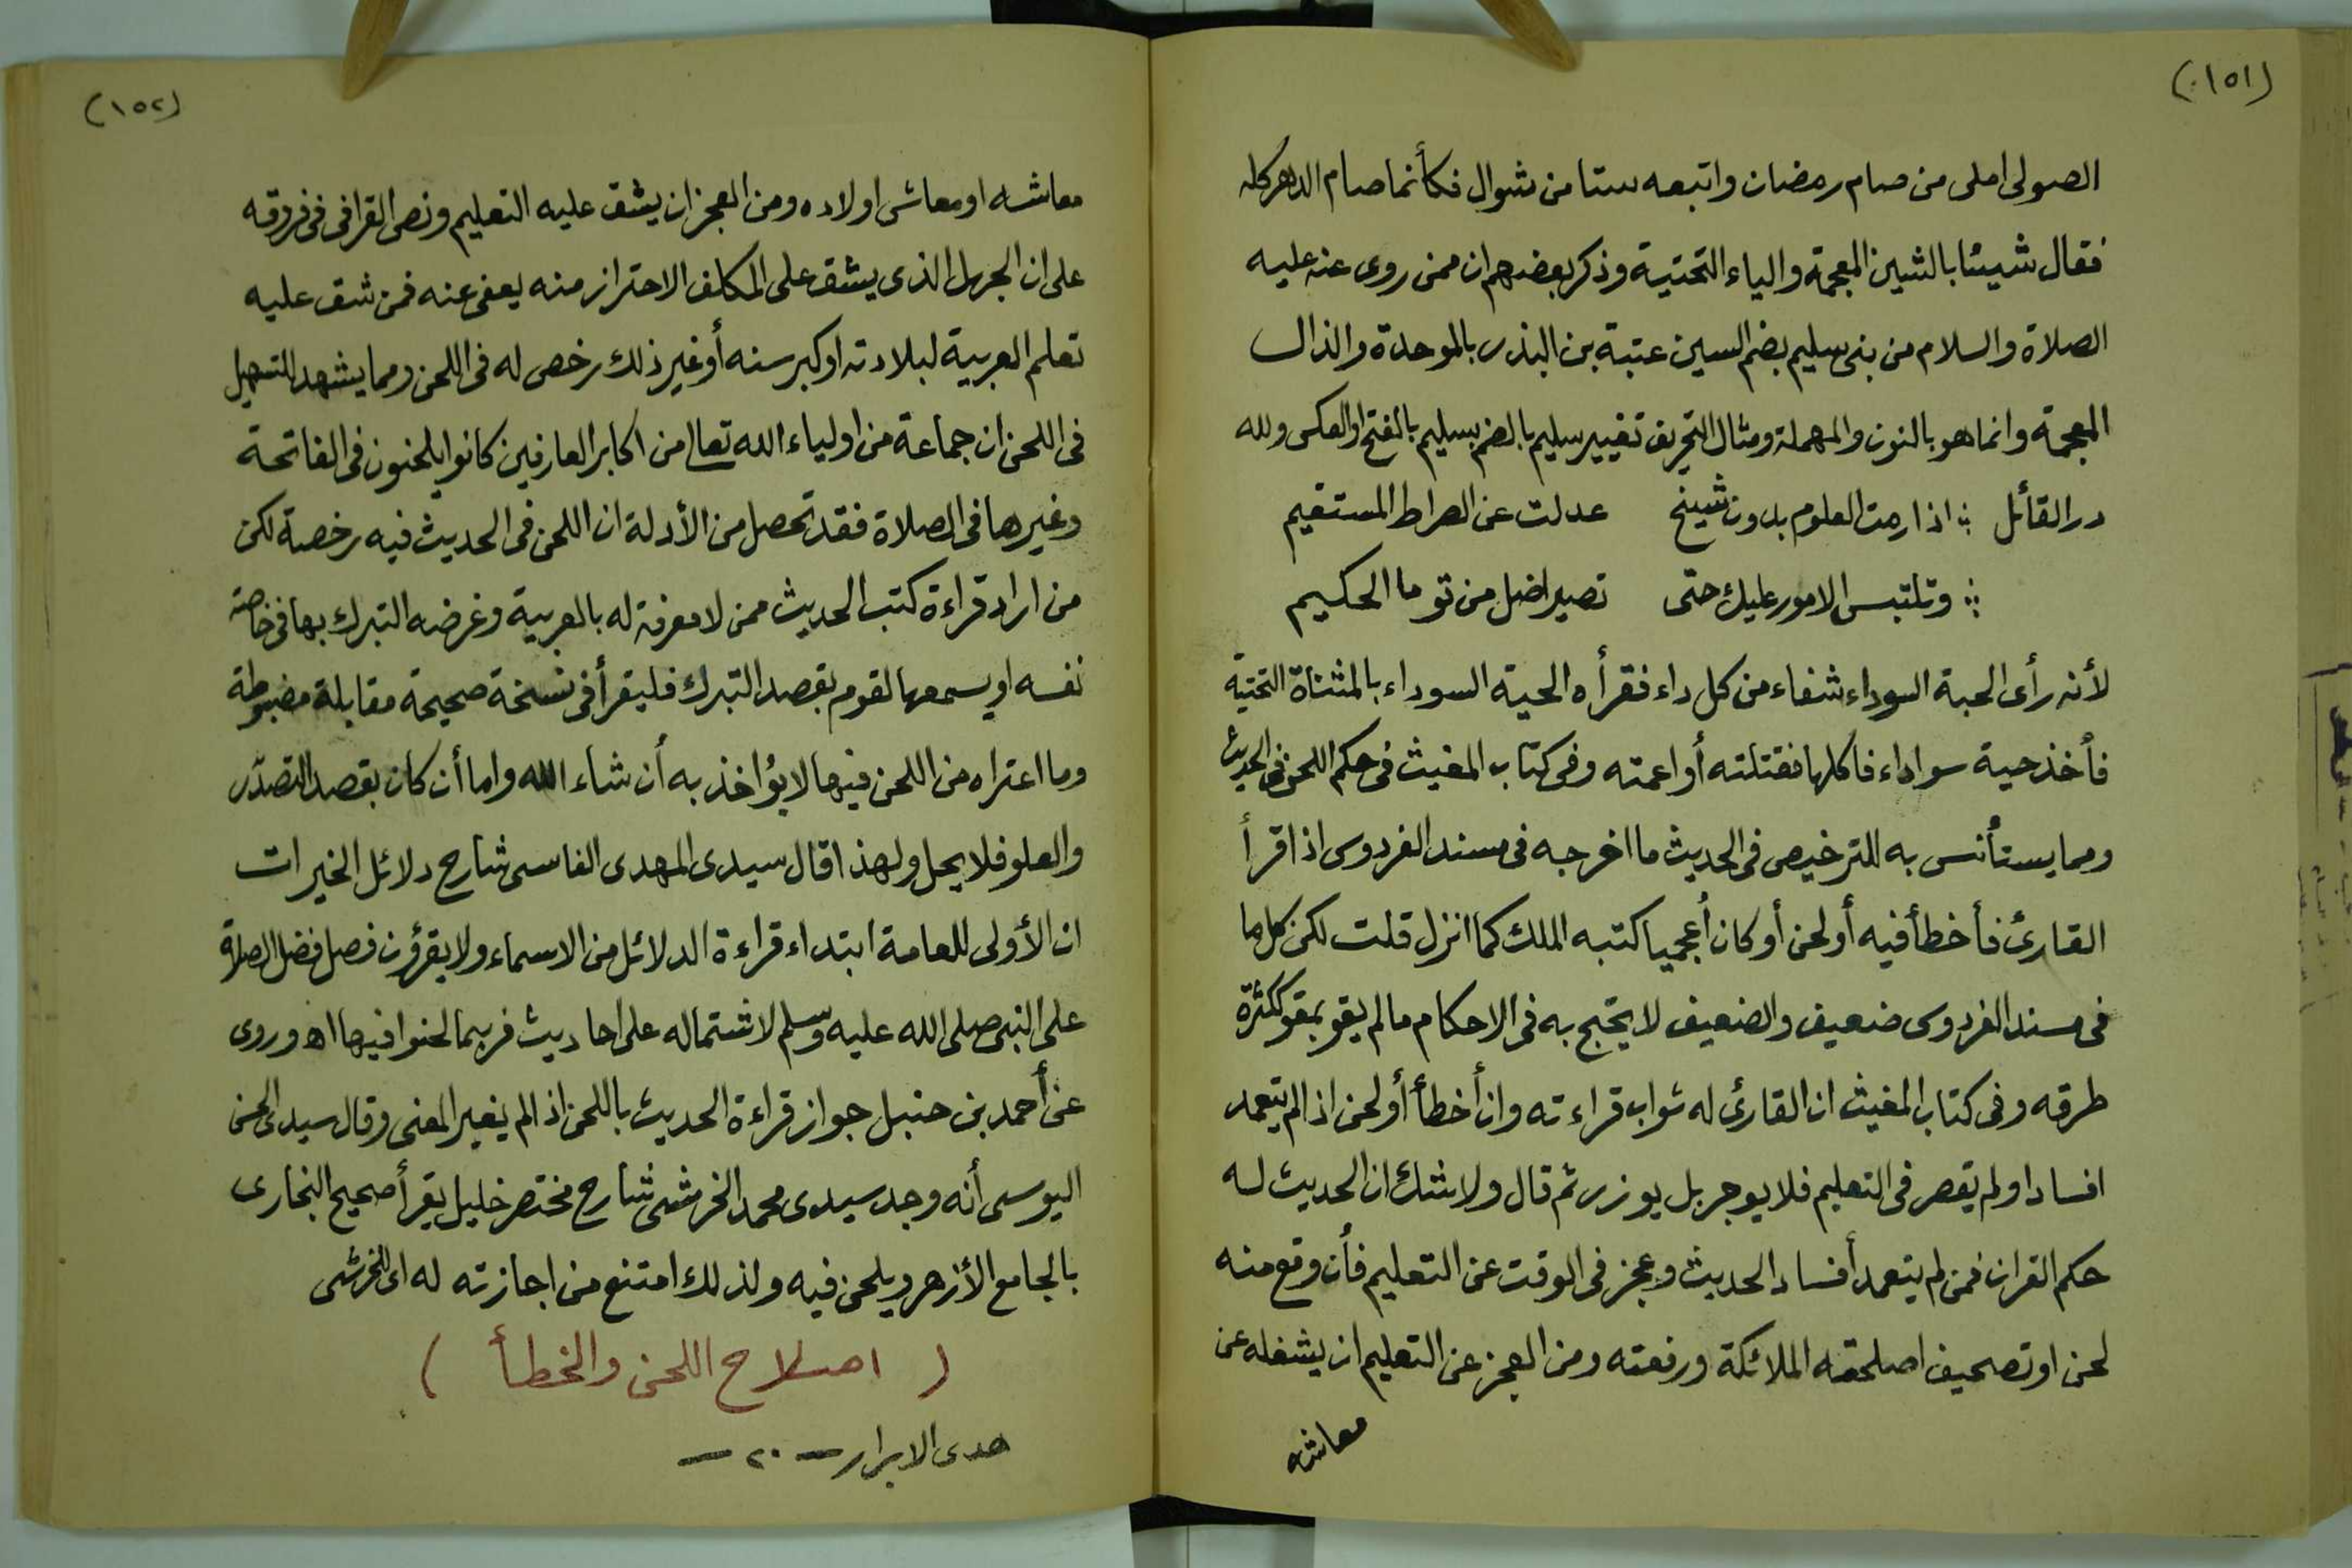 (١٥١)
الصولى املى من صام رمضان واتبعه ستا من شوال فكأنما صام الدهر كله
فقال شيئا بالشين المعجمة والياء التحتية وذكر بعضهم ان ممن روى عنه عليه
الصلاة والسلام من بنى سليم بضم السين عتبة بن البذر بالموحدة والذال
المعجمة وانما هو بالنون والمهملة ومثال التحريف تغيير سليم بالضم بسليم بالفتح او العكس ولله
در القائل ؛ اذا رمت العلوم بدون شيخ عدلت عن الصراط المستقيم
؛ وتلتبس الامور عليك حتى تصير اضل من توما الحكيم
لأنه رأى الحبة السوداء شفاء من كل داء فقرأه الحية السوداء بالمثناة التحتية
فأخذ حية سواداء فاكلها فقتلته أو اعمته وفى كتاب المغيث فى حكم اللحن فى الحديث
ومما يستأنس به للترخيص فى الحديث ما اخرجه فى مسند الفردوس اذا قرأ
القارئ فأخطأ فيه أو لحن أو كان أعجميا كتبه الملك كما انزل قلت لكن كل ما
فى مسند الفردوس ضعيف والضعيف لا يحتج به فى الاحكام ما لم يقو بمقو ككثرة
طرقه وفى كتاب المغيث ان القارئ له ثواب قراءته وان أخطأ أو لحن اذا لم يتعمد
افسادا ولم يقصر فى التعليم فلا يوجر بل يوزر ثم قال ولا شك ان الحديث له
حكم القران فمن لم يتعمد أفساد الحديث وعجز فى الوقت عن التعليم فأن وقع منه
لحن او تصحيف اصلحته الملائكة ورفعته ومن العجز عن التعليم ان يشغله عن
معاشه
(١٥٢)
معاشه او معاش اولاده ومن العجز ان يشق عليه التعليم ونص القرافى فى فروقه
على ان الجهل الذى يشق على المكلف الاحتراز منه يعفى عنه فمن شق عليه
تعلم العربية لبلادته او كبر سنه أو غير ذلك رخص له فى اللحن ومما يشهد للتسهيل
فى اللحن ان جماعة من اولياء الله تعالى من اكابر العارفين كانوا يلحنون فى الفاتحة
وغيرها فى الصلاة فقد تحصل من الأدلة ان اللحن فى الحديث فيه رخصة لكن
من اراد قراءة كتب الحديث ممن لا معرفة له بالعربية وغرضه التبرك بها فى خاصة
نفسه او يسمعها لقوم بقصد التبرك فليقرأ فى نسخة صحيحة مقابلة مضبوطة
وما اعتراه من اللحن فيها لا يؤاخذ به أن شاء الله واما أن كان بقصد التصدّر
والعلو فلا يحل ولهذا قال سيدى المهدى الفاسى شارح دلائل الخيرات
ان الأولى للعامة ابتداء قراءة الدلائل من الاسماء ولا يقرؤن فصل فضل الصلاة
على النبى صلى الله عليه وسلم لاشتماله على احاديث فربما لحنوا فيها اه وروى
عن أحمد بن حنبل جواز قراءة الحديث باللحن اذا لم يغير المعنى وقال سيدى الحسن
اليوسى أنه وجد سيدى محمد الخرشى شارح مختصر خليل يقرأ صحيح البخارى
بالجامع الأزهر ويلحن فيه ولذلك امتنع من اجازته له اى الخرشى
( اصلاح اللحن والخطأ )
هدى الابرار — ٢٠ —